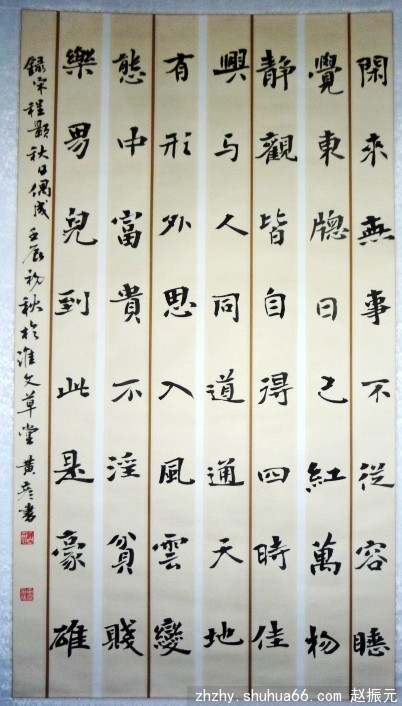 閑來無事不從容睡
覺東牕日已紅萬物
靜觀皆自得四時佳
興与人同道通天地
有形外思入風雲變
態中富貴不淫貧賤
樂男兒到此是豪雄
錄宋程顥秋日偶成壬辰初秋於淮文草堂黃彥書
zhzhy.shuhua66.com 赵振元